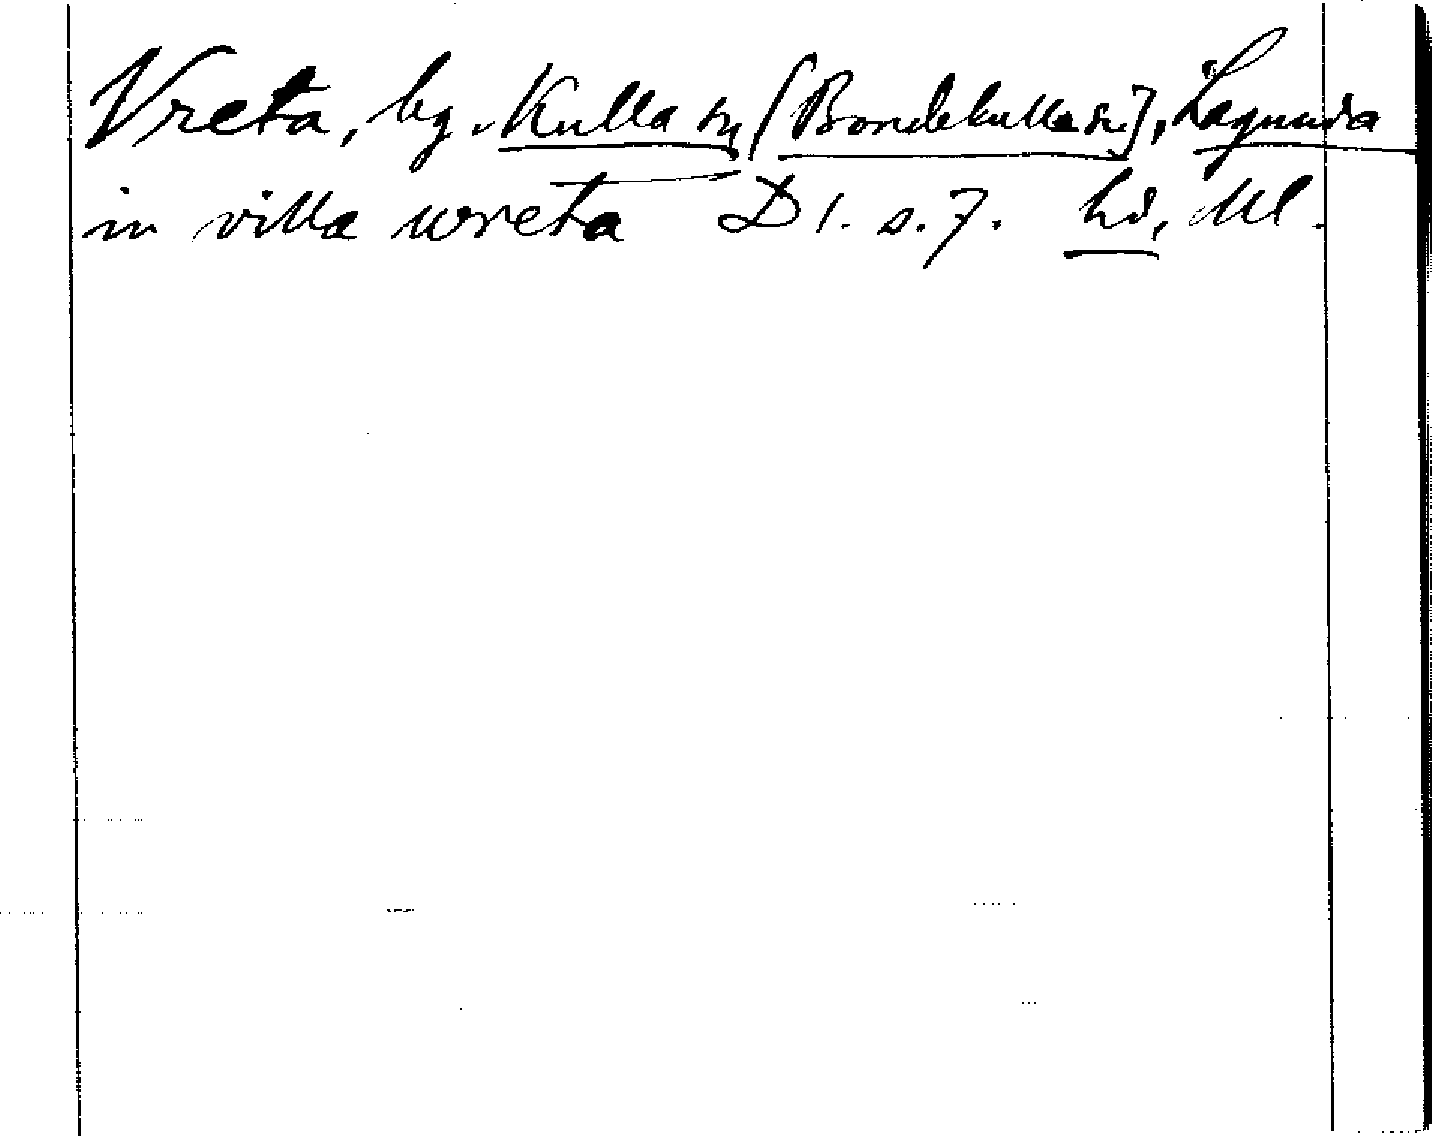 Vreta, by. Kulla sn [Bondekulla sn], Lagunda
in villa wreta D 1. s. 7. hd, Upl.